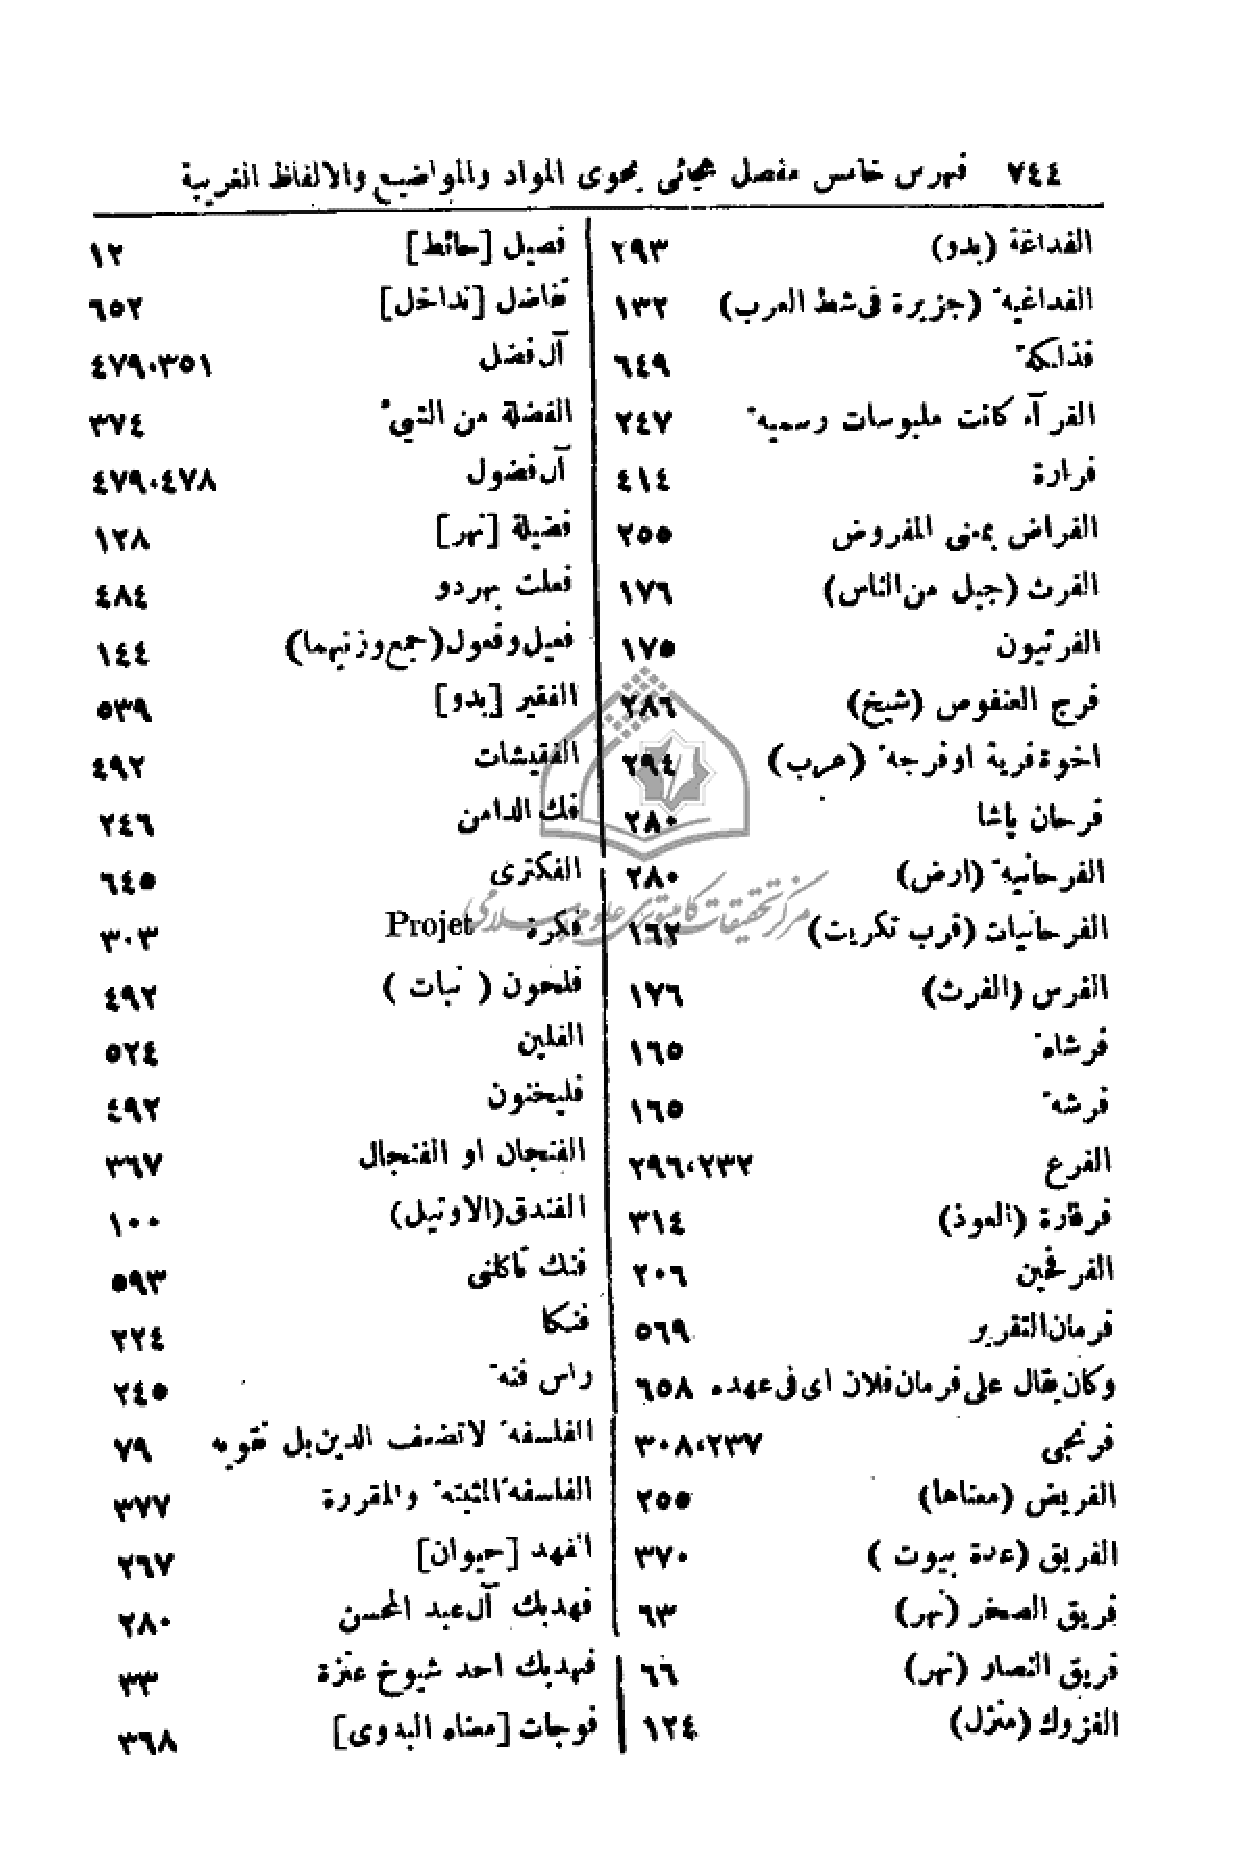 ٧٤٤ فهرس خامس مفصل هجائي يحوى المواد والمواضيع والالفاظ الغريبة
الفداغة (بدو) ٢٩٣
الفداغيه (جزيرة فى شط العرب) ١٣٢
فذلكة ٦٤٩
الفرآء كانت ملبوسات رسمية ٢٤٧
فرارة ٤١٤
الفراض بمعنى المفروض ٢٥٥
الفرث (جيل من الناس) ١٧٦
الفرثيون ١٧٥
فرج العنفوص (شيخ) ٢٨٦
اخوة فرية او فرجة (عرب) ٢٩٤
فرحان باشا ٢٨٠
الفرحانية (ارض) ٢٨٠
الفرحانيات (قرب تكريت) ١٦٢
الفرس (الفرث) ١٧٦
فرشاة ١٦٥
فرشة ١٦٥
الفرع ٢٩٦،٢٣٢
فرقارة (العوذ) ٣١٤
الفرفحين ٢٠٦
فرمان التقرير ٥٦٩
وكان يقال على فرمان فلان اى فى عهده ٦٥٨
فرنجى ٣٠٨،٢٣٧
الفريض (معناها) ٢٥٥
الفريق (عدة بيوت) ٣٧٠
فريق الصخر (نهر) ٦٣
فريق النصار (نهر) ٦٦
الفزوك (منزل) ١٢٤
فصيل [حائط] ١٢
تفاضل [تداخل] ٦٥٢
آل فضل ٤٧٩،٣٥١
الفضلة من الشيء ٣٧٤
آل فضول ٤٧٩،٤٧٨
فضيلة [نهر] ١٢٨
فعلت بهردو ٤٨٤
فعيل وفعول (جمع وزنيهما) ١٤٤
الفقير [بدو] ٥٣٩
الفقيشات ٤٩٢
فك الدامن ٢٤٦
الفكترى ٦٤٥
فكرة Projet ٣٠٣
فلحون (نبات) ٤٩٢
الفلين ٥٢٤
فليخنون ٤٩٢
الفنجان او الفنجال ٣٦٧
الفندق (الاوتيل) ١٠٠
فنك تاكلنى ٥٩٣
فنيكا ٢٢٤
راس فنة ٢٤٥
الفلسفة لاتضعف الدين بل تقويه ٧٩
الفلسفة المثبتة والمقررة ٣٧٧
الفهد [حيوان] ٢٦٧
فهد بك آل عبد المحسن ٢٨٠
فهد بك احد شيوخ عنزة ٣٣
فوجات [معناه البدوى] ٣٦٨
مركز تحقيقات كامپيوترى علوم اسلامى